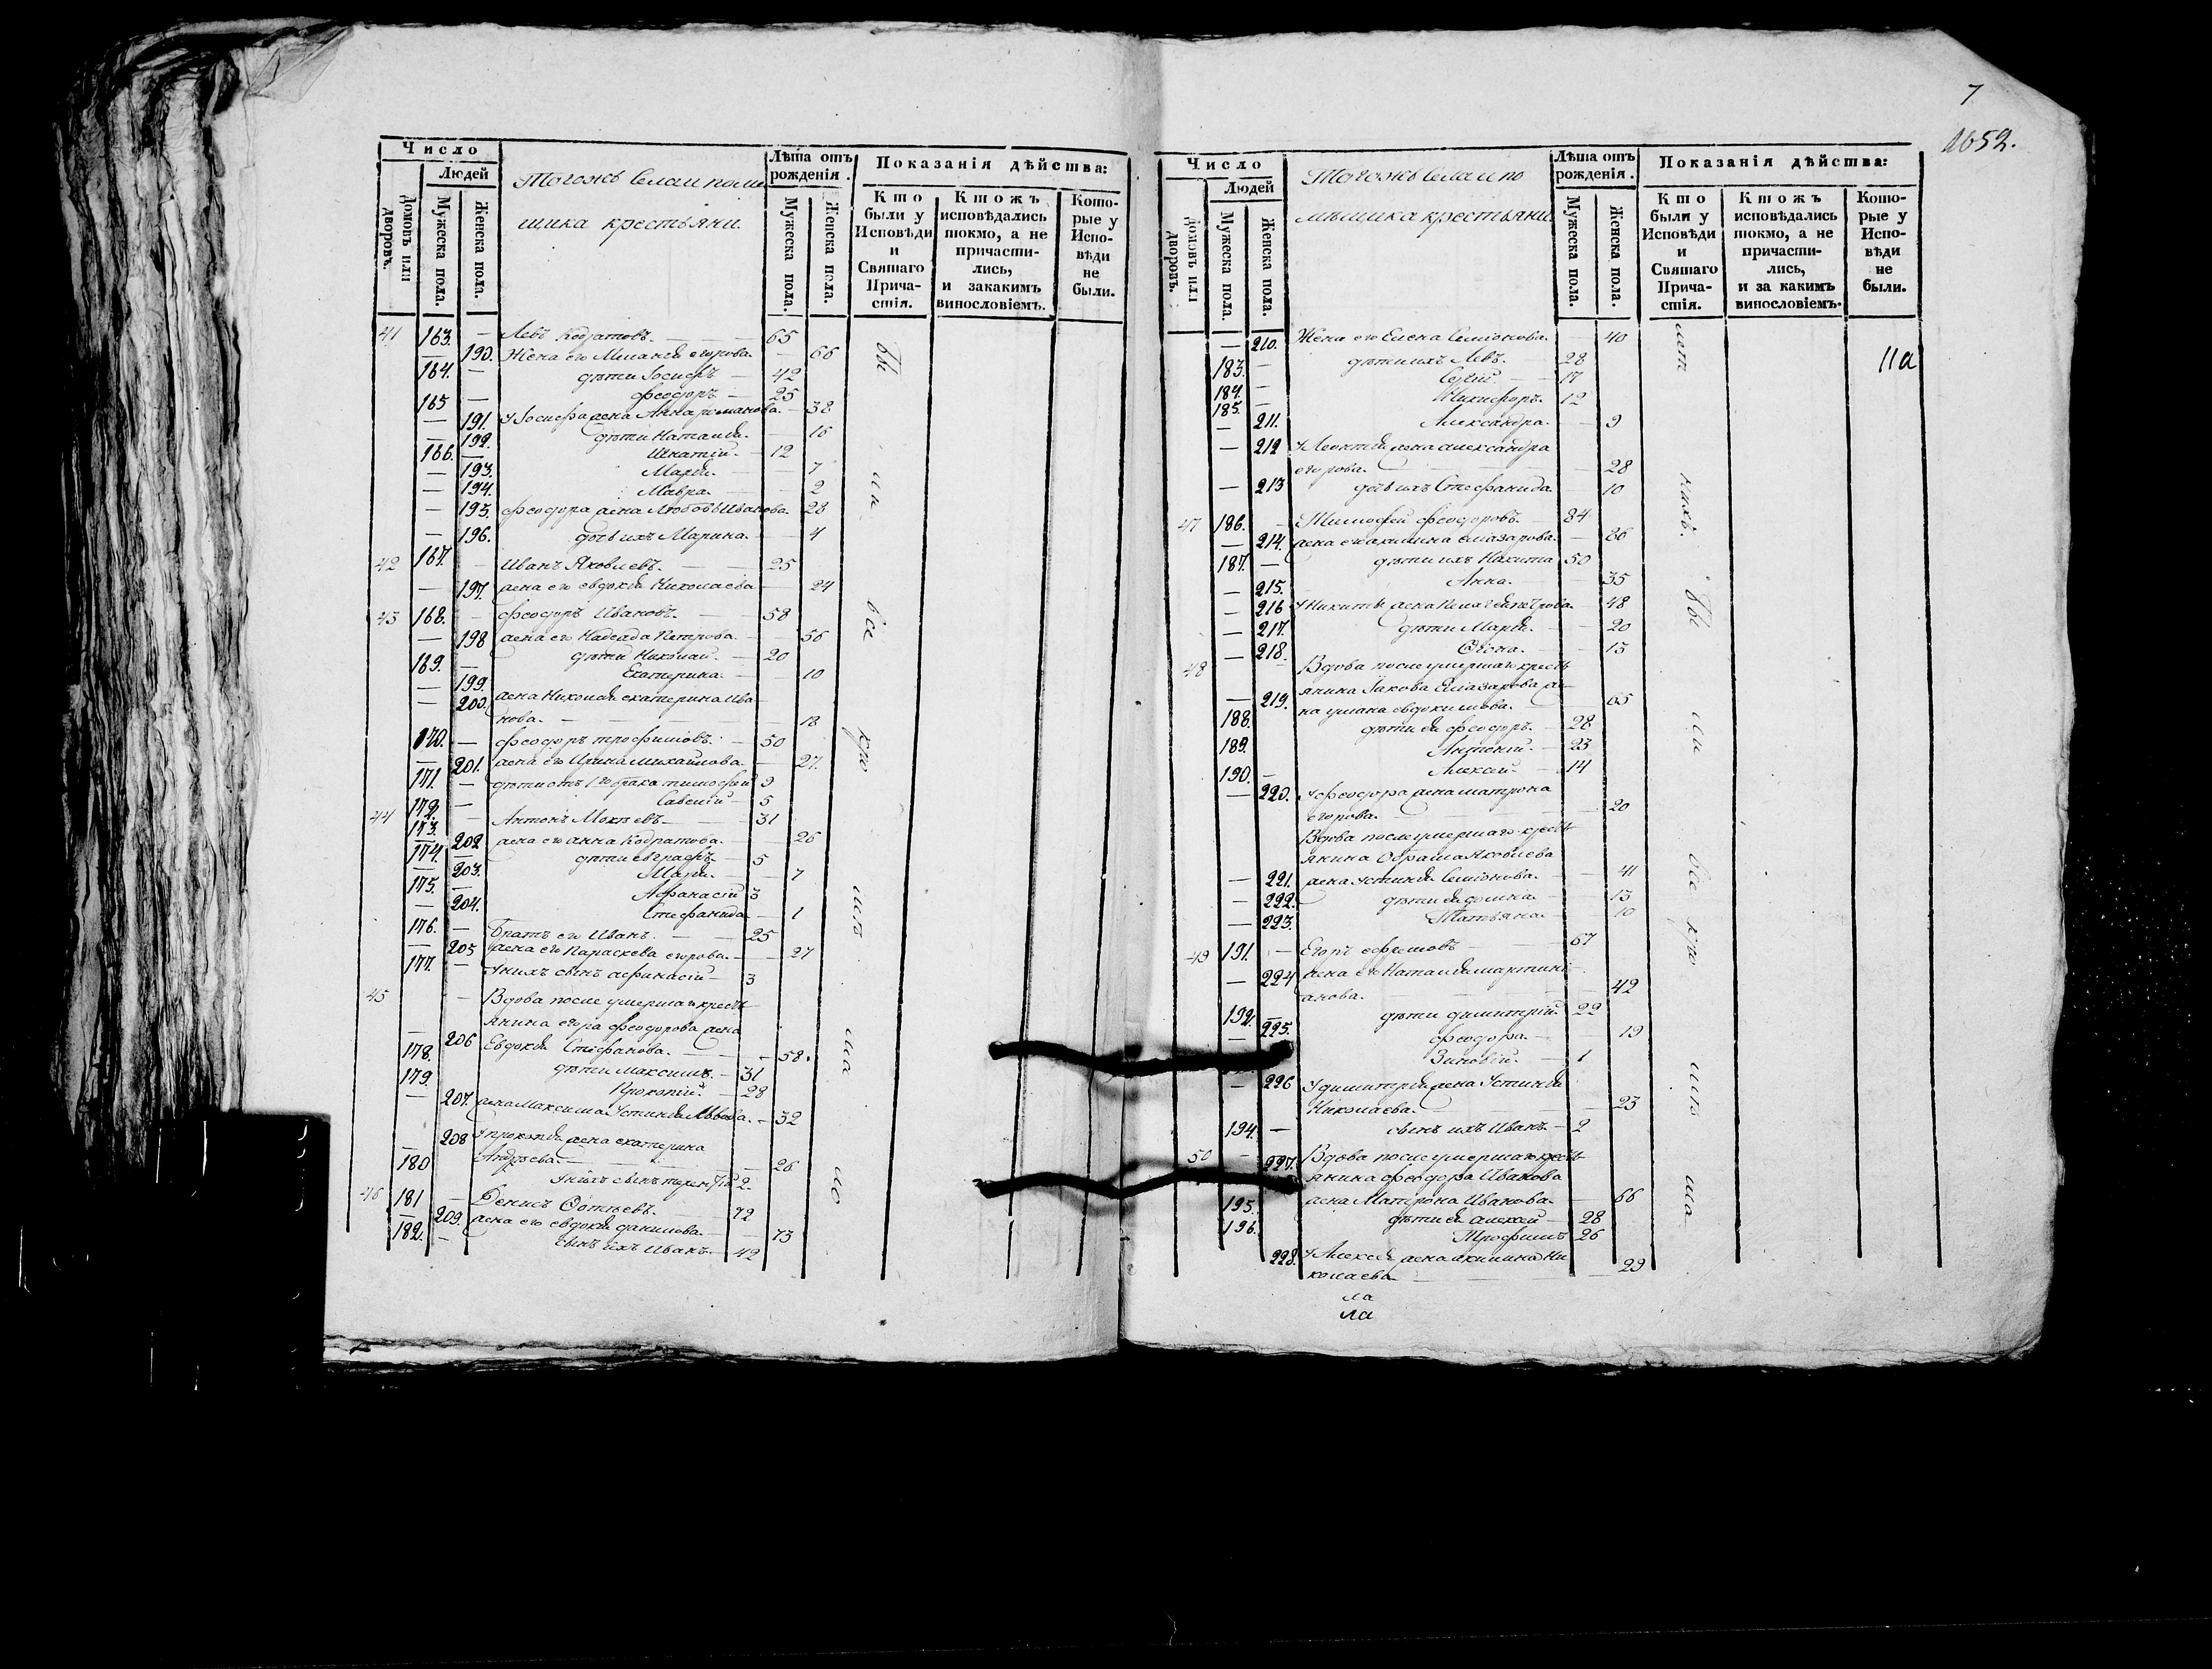 Число
Людей
Домовъ или дворовъ.
Мужеска пола.
Женска пола.
Тогожъ села поме
щика крестьяни.
Лѣта отъ рожденія.
Мужеска пола.
Женска пола.
Показанія дѣйства:
Кто были у Исповѣди и Святаго Прича-стія.
Ктожъ исповѣдались токмо, а не причасти-лись, и закакимъ винословіемъ.
Кото-рые у Испо-вѣди не были.
41 163. — Левъ Кодратовъ. — 65
— 190. Жена его Егорова. — 66
164. — дѣти Іосифъ — 42
165 — Феодоръ — 25
— 191. У Іосифа жена Анна Романова. — 38
— 192. дѣти Наталія. — 16
166. — Игнатій. — 12
— 193. Марія. — 7
— 194. Мавра. — 2
— 195. Феодора жена Любовь Иванова. 28
— 196. дочь ихъ Марина. — 4
42 167. — Иванъ Яковлевъ. — 25
— 197. жена его Евдокія Николаева — 24
43 168. — Феодоръ Ивановъ. — 58
— 198 жена его Надежда Петрова. — 56
169. — дѣти Николай. — 20
— 199. Екатерина. — 10
— 200. жена Николая Екатерина Ива
нова. — 18
170. — Феодоръ Трофимовъ. — 50
— 201. жена его Ирина Михайлова — 27.
171. — дѣти отъ 1го брака Тимофей 9
172. — Савелій — 5
44 173. — Антонъ Мокѣевъ — 31
— 202 жена его Анна Кодратова. — 26
174. — дѣти Евграфъ. — 5
— 203. Марія. — 7
175. — Афанасій 3
— 204. Стефанида — 1
176. — Братъ его Иванъ. — 25
— 205 жена его Параскева Егорова. — 27
177. — У нихъ сынъ Афанасій — 3
45 — Вдова после умершаго кресть
янина Егора Феодорова жена
— 206 Евдокія Стефанова. — 58.
178. дѣти Максимъ. — 31
179. Прокопій. — 28
— 207. жена Максима Устинія Львова. — 32
208 У Прокопія жена Екатерина
— Андреева. — 26
180 У нихъ сынъ 2.
46 181 — Денисъ Фотѣевъ. — 72
— 209. жена его Евдокія Данилова. — 73
182. — сынъ ихъ Иванъ. — 42
бы
ли
все
кто
ихъ
на
ло
7
1652.
11а
Число
Людей
Домовъ или дворовъ.
Мужеска пола.
Женска пола.
Тогожъ села по
мѣщика крестьяни
Лѣта отъ рожденія.
Мужеска пола.
Женска пола.
Показанія дѣйства:
Кто были у Исповѣди и Святаго Прича-стія.
Ктожъ исповѣдались токмо, а не причасти-лись, и за какимъ винословіемъ.
Кото-рые у Испо-вѣди не были.
— 210. Жена его Елена Семіонова. — 40
183. — дѣти ихъ Левъ. 28
184. — Сергій. — 17
185. — Никифоръ. 12
— 211. Александра. — 9
— 212 У Леонтія жена Александра
Егорова. — 28
— 213 дочь ихъ Стефанида — 10
47 186. — Тимофей Феодоровъ. — 84
— 214. жена его Акилина Елазарова. — 86
187. — дѣти ихъ Никита 50
— 215. Анна. — 35
— 216 У Никиты жена Пелагея Петрова — 48
— 217. дѣти Марія. — 20
— 218. Фекла. — 15
48 Вдова после умершаго кресть
янина Іакова Елазарова же
— 219. на Ульяна Евдокимова. 65
188. дѣти ея Феодоръ. — 28
189. Антоній. — 23
190. — Алексей. — 14
— 220. У Феодора жена Матрона
Егорова. — 20
Вдова после умершаго кресть
янина Яковлева
— 221. жена Устинія Семіонова. — 41
— 222. дѣти ея Домна. — 13
— 223. Татьяна. — 10
49 191. — Егоръ Ефремовъ — 67
— 224 жена его Наталія Мартині
анова. — 42
192. — дѣти Димитрій. 22
— 225. Феодора. — 19
Зиновій. — 1
— 226 У Димитрія жена Устинія
Николаева. — 23
194. — сынъ ихъ Иванъ. — 2
50 — 227. Вдова после умершаго кресть
янина Феодора Иванова
жена Матрона Иванова. — 66
195. дѣти ея Алексей — 28
196. Трофимъ 26
228. У Алексея жена Акилина Ни
колаева — 29
ла
ла
нихъ.
бы
ли
все
кто
ихъ
на